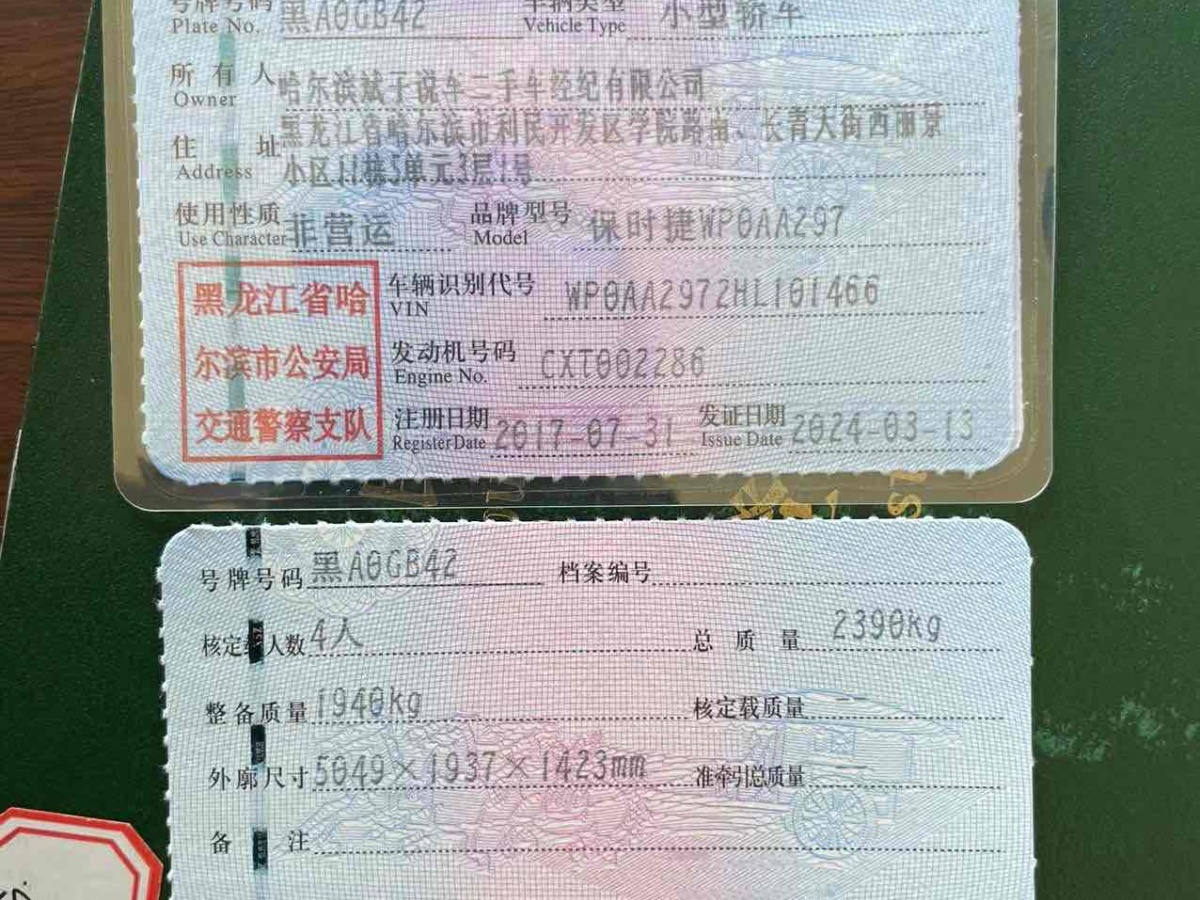 号牌号码 黑A0GB42 车辆类型 小型轿车
Plate No. Vehicle Type
所有人 哈尔滨斌子说车二手车经纪有限公司
Owner
黑龙江省哈尔滨市利民开发区学院路南、长青大街西丽景
住址
Address 小区11栋5单元3层1号
使用性质 非营运 品牌型号 保时捷WP0AA297
Use Character Model
黑龙江省哈
尔滨市公安局
交通警察支队
车辆识别代号 WP0AA2972HL101466
VIN
发动机号码 CXT002286
Engine No.
注册日期 2017-07-31 发证日期 2024-03-13
Register Date Issue Date
号牌号码 黑A0GB42 档案编号
核定 人数 4人 总质量 2390kg
整备质量 1940kg 核定载质量 --
外廓尺寸 5049×1937×1423mm 准牵引总质量 --
备注